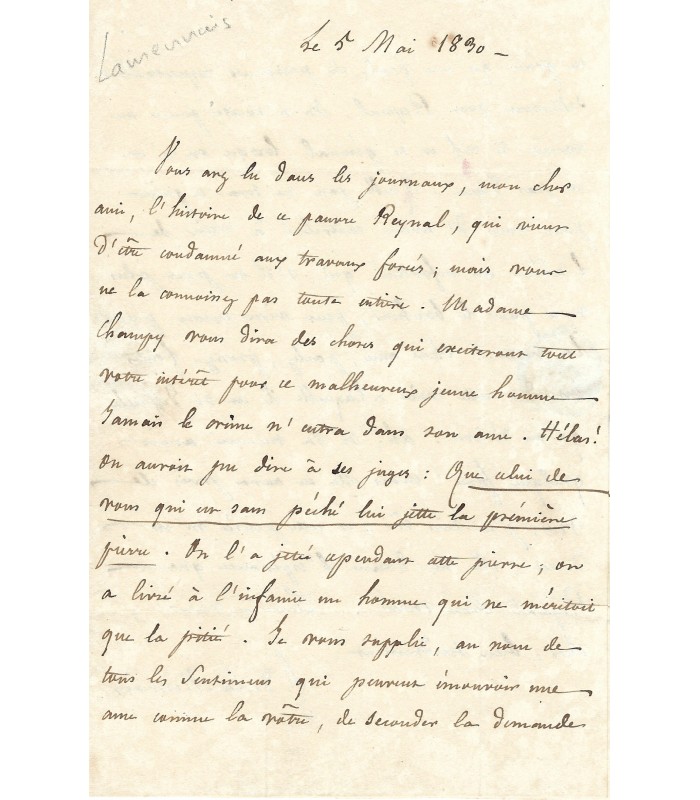 Lamennais
Le 5 Mai 1830 –
Vous avez lu dans les journaux, mon cher
ami, l'histoire de ce pauvre Reynal, qui vient
d'être condamné aux travaux forcés ; mais vous
ne la connoissez pas toute entière. Madame
Champy vous dira des choses qui exciteront tout
votre intérêt pour ce malheureux jeune homme
Jamais le crime n'entra dans son ame. Hélas!
On auroit pu dire à ses juges : Que celui de
vous qui est sans péché lui jette la prémière
pierre. On l'a jetée cependant cette pierre ; on
a livré à l'infamie un homme qui ne méritoit
que la pitié. Je vous supplie, au nom de
tous les sentimens qui peuvent émouvoir une
ame comme la vôtre, de seconder la demande